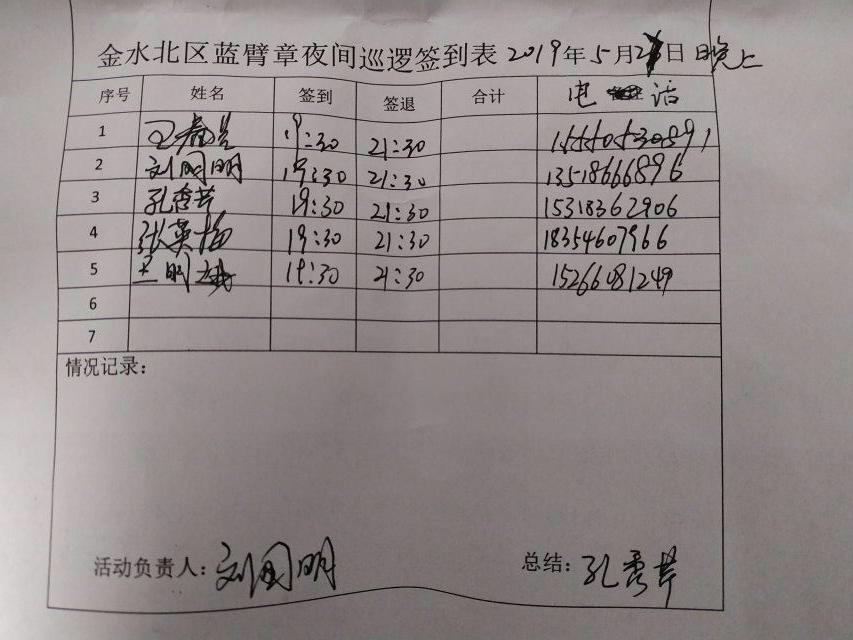 金水北区蓝臂章夜间巡逻签到表 2019年5月2日晚上
序号 姓名 签到 签退 合计 电话
1 王春兰 19:30 21:30 15550530891
2 刘国明 19:30 21:30 13518666896
3 孔秀芹 19:30 21:30 15318362906
4 张英梅 19:30 21:30 18354607966
5 王明 19:30 21:30 15266081249
6
7
情况记录:
活动负责人:刘国明 总结:孔秀芹